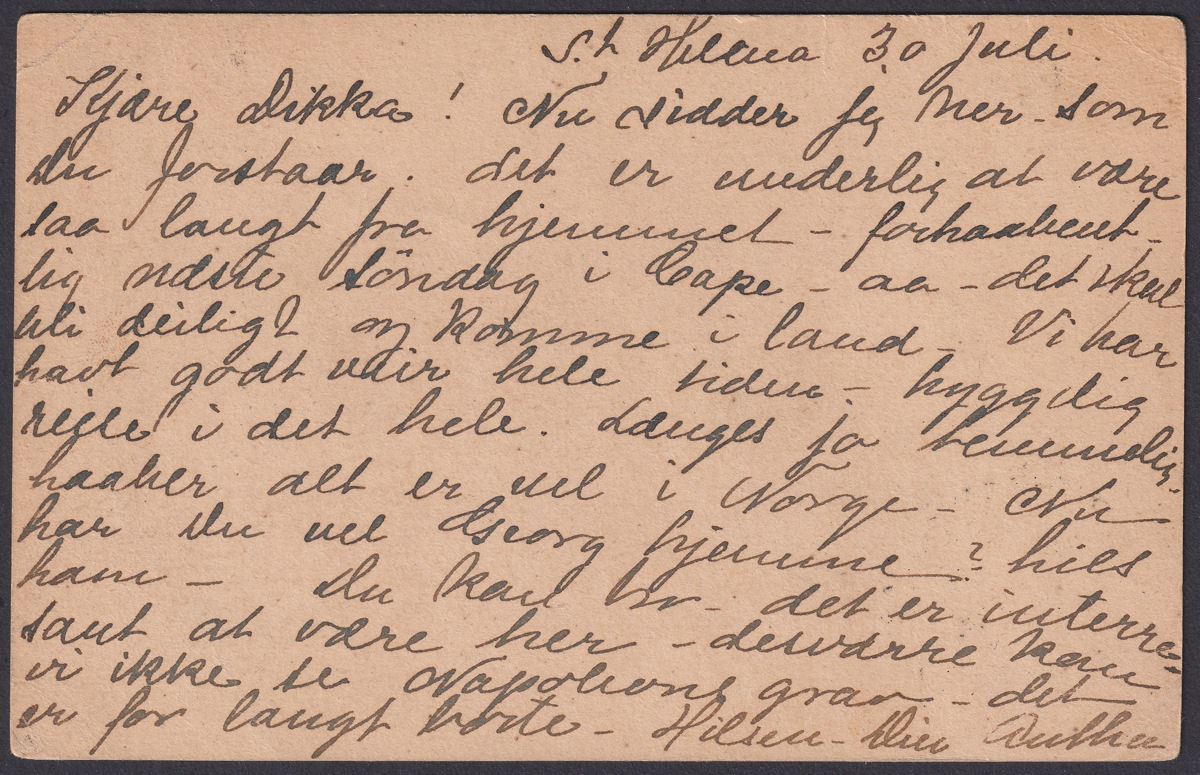 St Helena 30 Juli.
Kjære Dikka! Nu sidder jeg her - som
Du forstaar. det er underlig at være
saa langt fra hjemmet - forhaabent-
lig næste Söndag i Cape - aa - det skal
bli deiligt og komme i land - Vi har
havt godt veir hele tiden - hyggelig
rejse i det hele. Længes jo temmelig,
haaber alt er vel i Norge - Nu
har Du vel Georg hjemme? hils
ham - Du kan tro - det er interre-
sant at være her - desværre kan
vi ikke se Napoleons grav - det
er for langt borte - Hilsen - Din